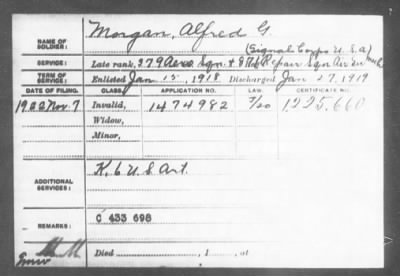 NAME OF SOLDIER: Morgan, Alfred G.
(Signal Corps U.S.A)
SERVICE: Late rank, 279 Aero Sqn + 876 Repair Sqn Air Ser
TERM OF SERVICE: Enlisted Jan 15, 1918 Discharged Jan 27, 1919
DATE OF FILING. CLASS. APPLICATION NO. LAW. CERTIFICATE NO.
1922 Nov. 7 Invalid, 1474982 7/20 1225.660
Widow,
Minor,
ADDITIONAL SERVICES: K, 6 U.S. Art.
REMARKS: C 433 698
Died , 1 , at